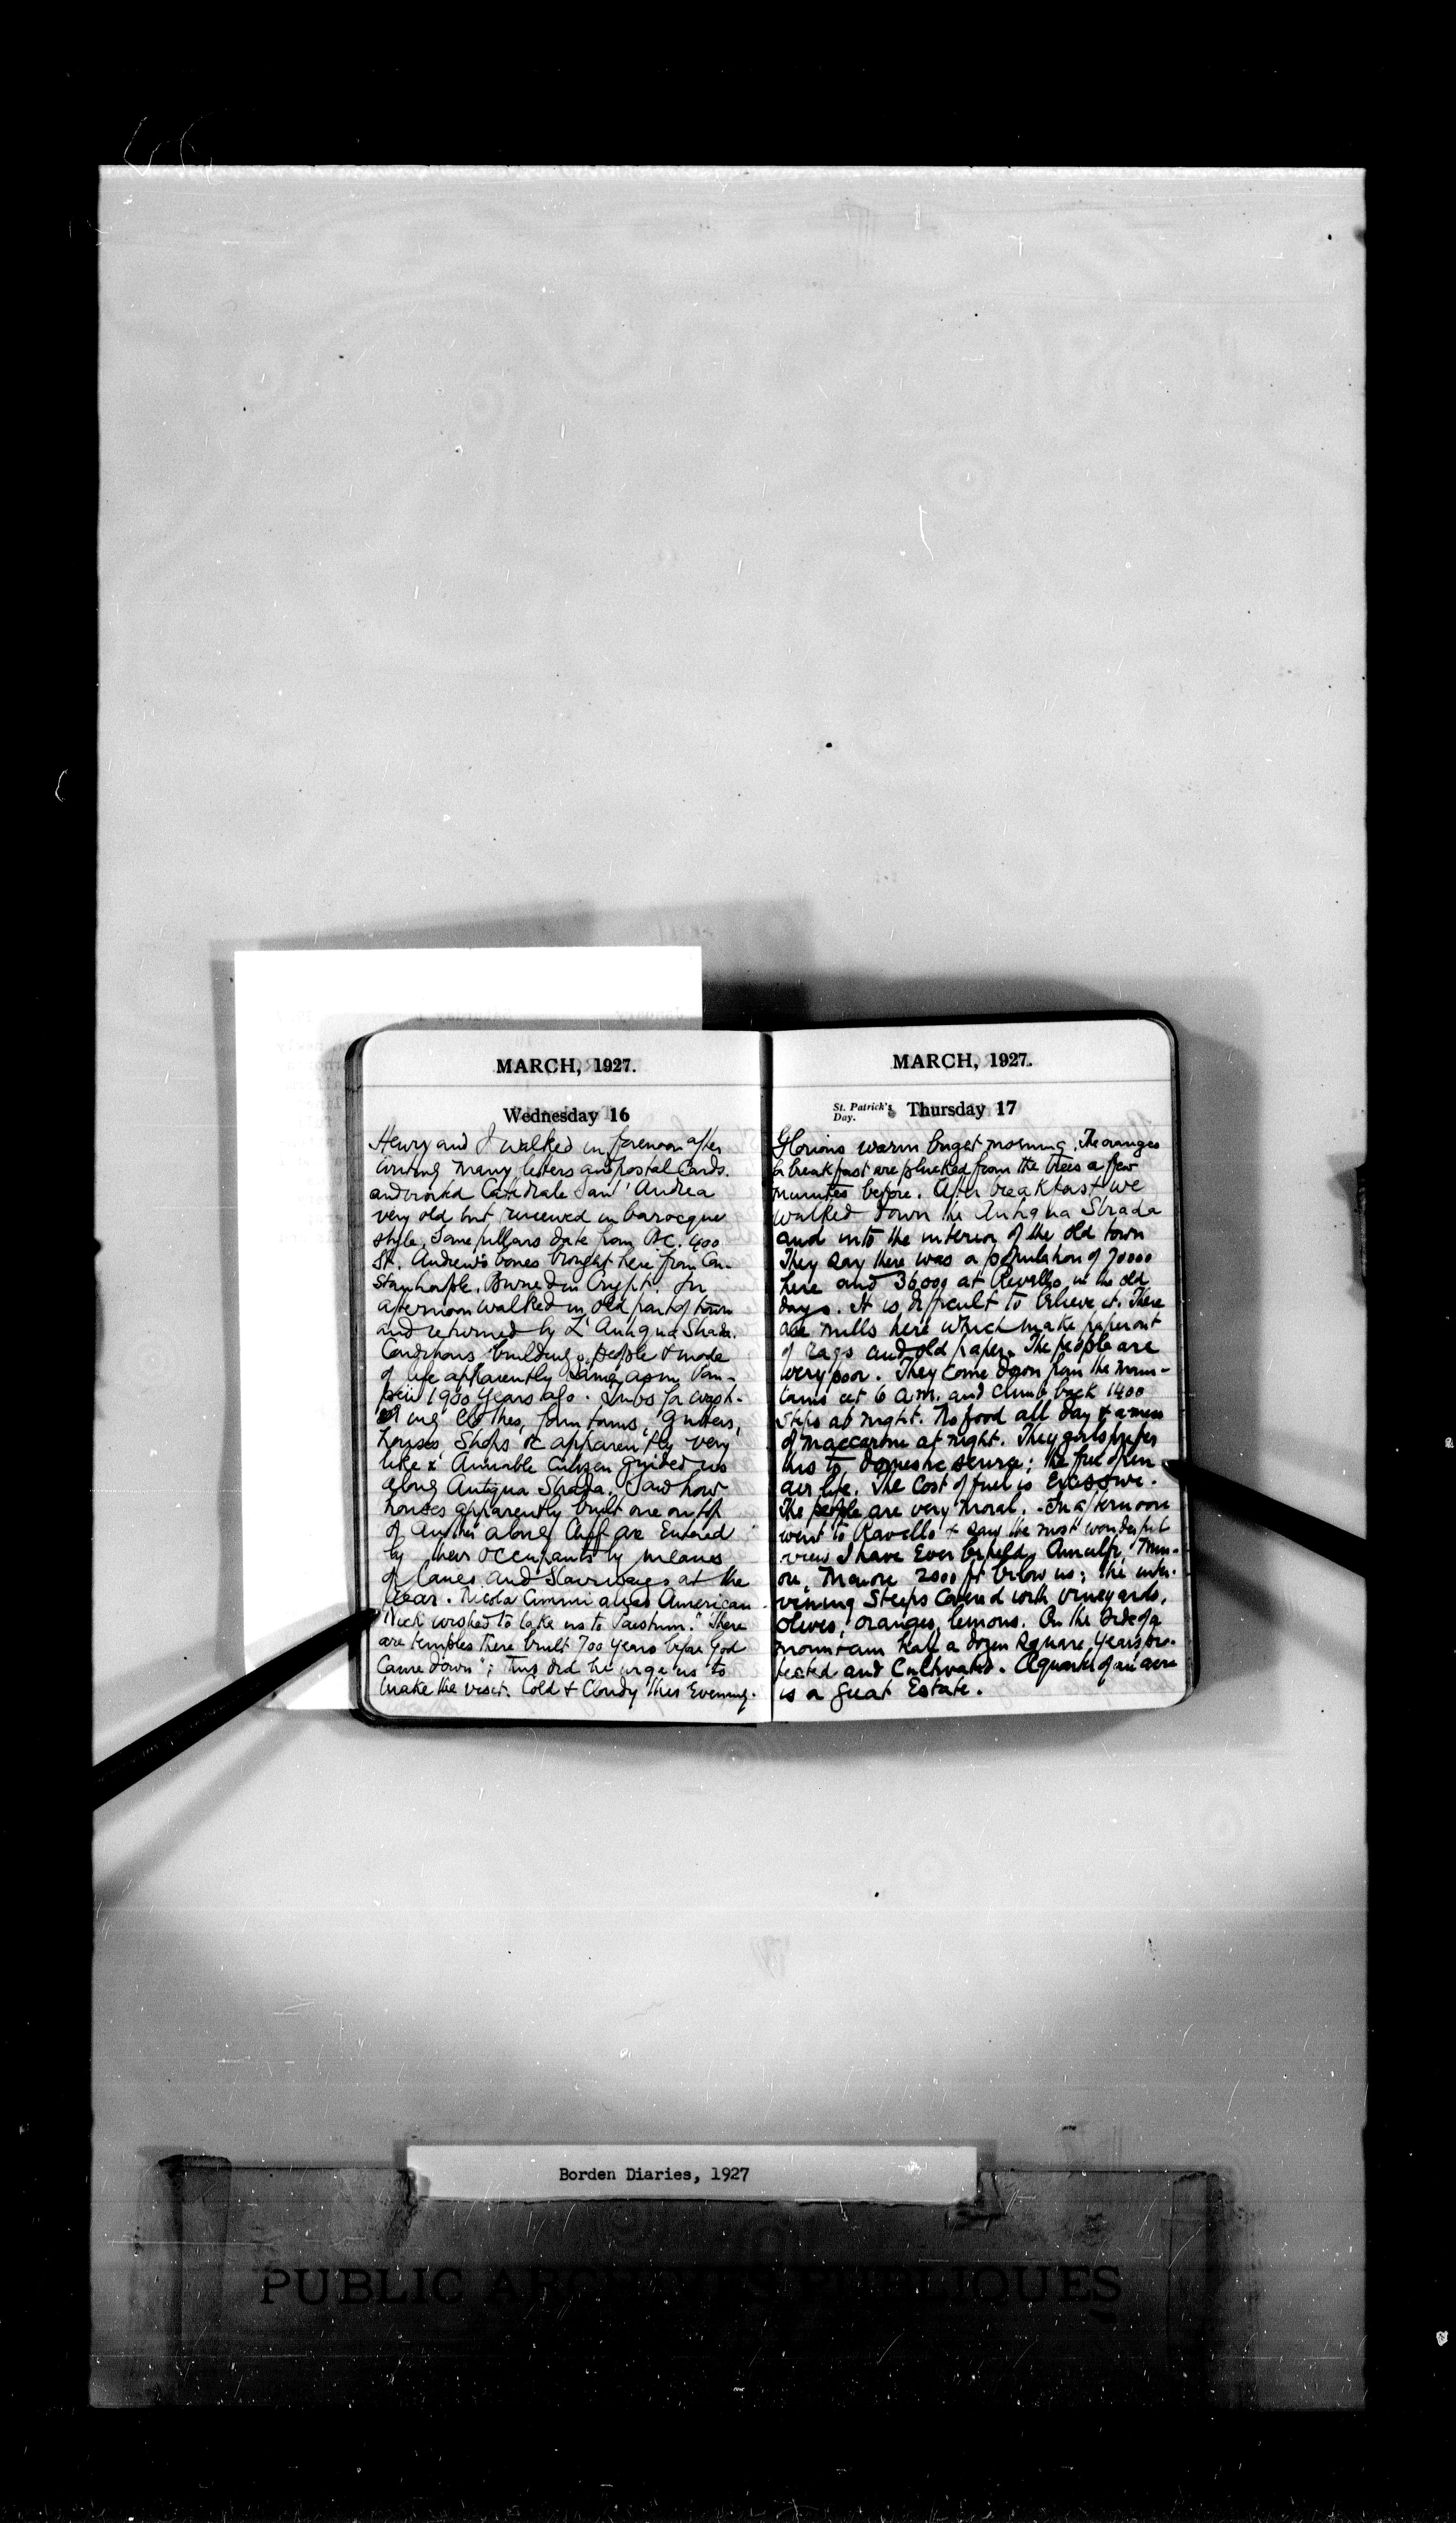 MARCH, 1927.
Wednesday 16
Henry and I walked in forenoon after
writing many letters and postal cards.
and visited Catedrale Sant' Andrea
very old but renewed in barocque
style. Some pillars date from BC. 400
St. Andrew's bones brought here from Con-
stantinople. Buried in Crypt. In
afternoon walked in old part of town
and returned by L'Antiqua Strada.
Conditions buildings, people & mode
of life apparently same as in Pom-
peii 1900 years ago. Tubs for wash-
ing clothes, fountains, gutters,
houses shops &c apparently very
like. Amiable Citizen guided us
along Antiqua Strada. Saw how
houses apparently built one on top
of another along Cliff are Entered
by their occupants by means
of lanes and Stairways at the
rear. Nicola Cimmi alias American
Nick wished to take us to Paestum. "There
are temples there built 700 years before God
Came down"; Thus did he urge us to
make the visit. Cold & Cloudy this Evening.
MARCH, 1927.
St. Patrick's Day. Thursday 17
Glorious warm briget morning. The oranges
for breakfast are plucked from the trees a few
minutes before. After breakfast we
walked down the Antiqua Strada
and into the interior of the old town
They say there was a population of 70000
here and 36000 at Ravello in the old
days. It is difficult to believe it. There
are mills here which make paper out
of rags and old paper. The people are
very poor. They come down from the moun-
tains at 6 a.m. and climb back 1400
steps at night. No food all day & a mess
of maccarone at night. They girls prefer
this to domestic service; the free open
air life. The Cost of fuel is Excessive.
The people are very moral. In afternoon
went to Ravello & saw the most wonderful
view I have Ever beheld. Amalfi, Min-
ori, Maiori 2000 ft below us; the inter-
vening Steeps Covered with vineyards,
olives, oranges, lemons. On the side of a
mountain half a dozen square yards pro-
tected and Cultivated. A quarter of an acre
is a great Estate.
Borden Diaries, 1927
PUBLIC ARCHIVES PUBLIQUES